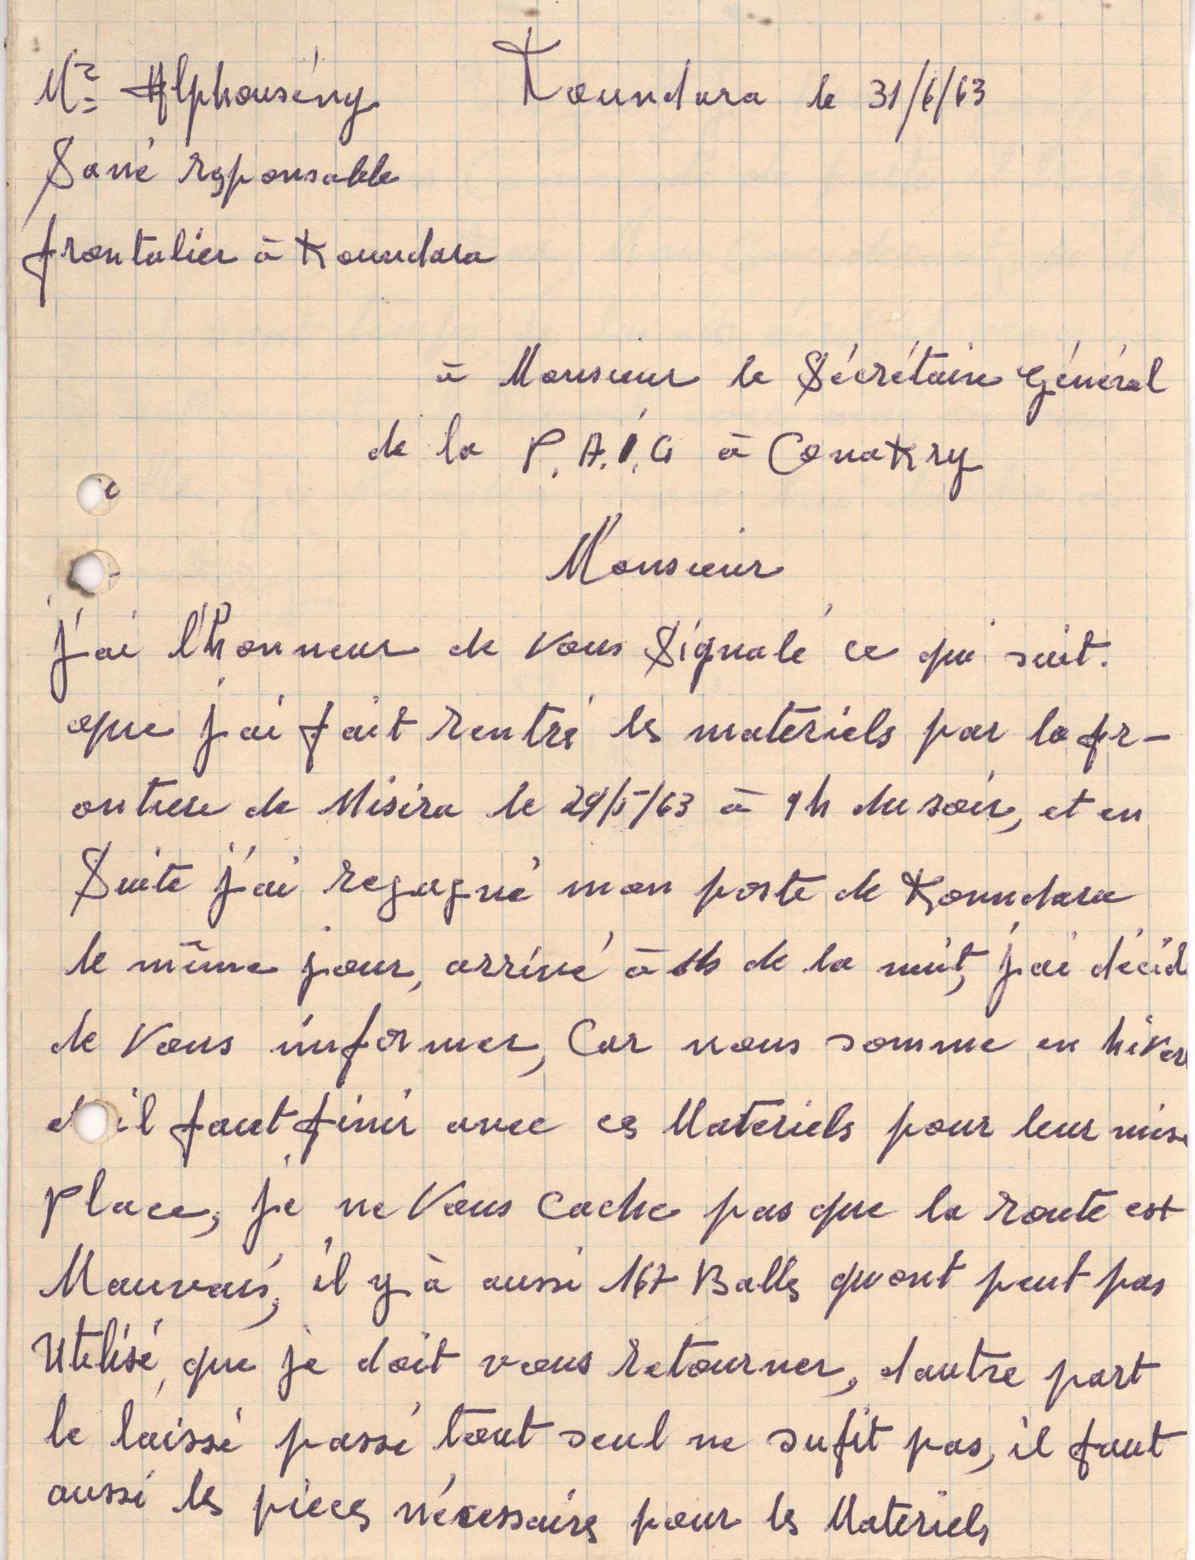 Mr Alphousény
Koundara le 31/6/63
Sané reponsable
frontalier à Koundara
à Monsieur le Sécrétaire Général
de la P.A.I.G à Conakry
Monsieur
j'ai l'honneur de vous Signalé ce qui suit.
que j'ai fait rentré les materiels par la fr-
ontiere de Misira le 29/5/63 à 9h du soir, et en
Suite j'ai regagné mon poste de Koundara
le même jour, arrivé à de la nuit, j'ai décid
de Vous informer, Car nous somme en hiver
et il faut finir avec ces Materiels pour leur mise
Place, je ne Vous cache pas que la route est
Mauvais, il y à aussi 167 Balles quont peut pas
Utilisé, que je doit vous retourner, dautre part
le laissé passé tout seul ne sufit pas, il faut
aussi les pieces nécessaires pour les Materiels